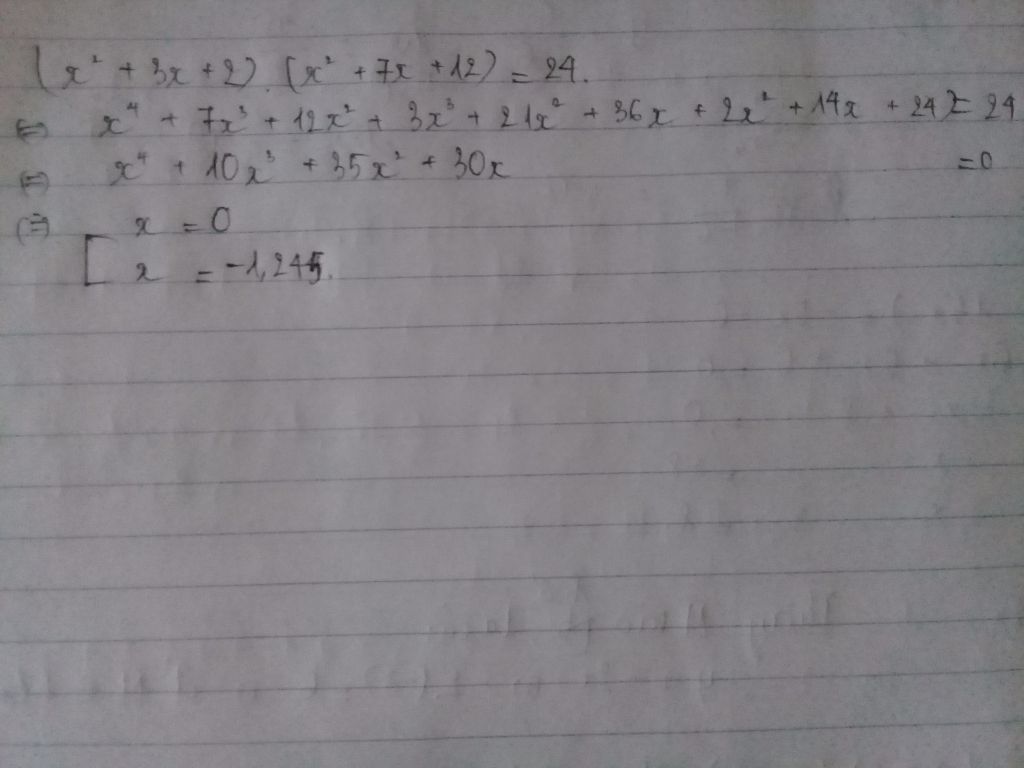 (x² + 3x + 2).(x² + 7x + 12) = 24.
(=) x⁴ + 7x³ + 12x² + 3x³ + 21x² + 36x + 2x² + 14x + 24 = 24
(=) x⁴ + 10x³ + 35x² + 30x = 0
(=) [ x = 0
x = -1,245.